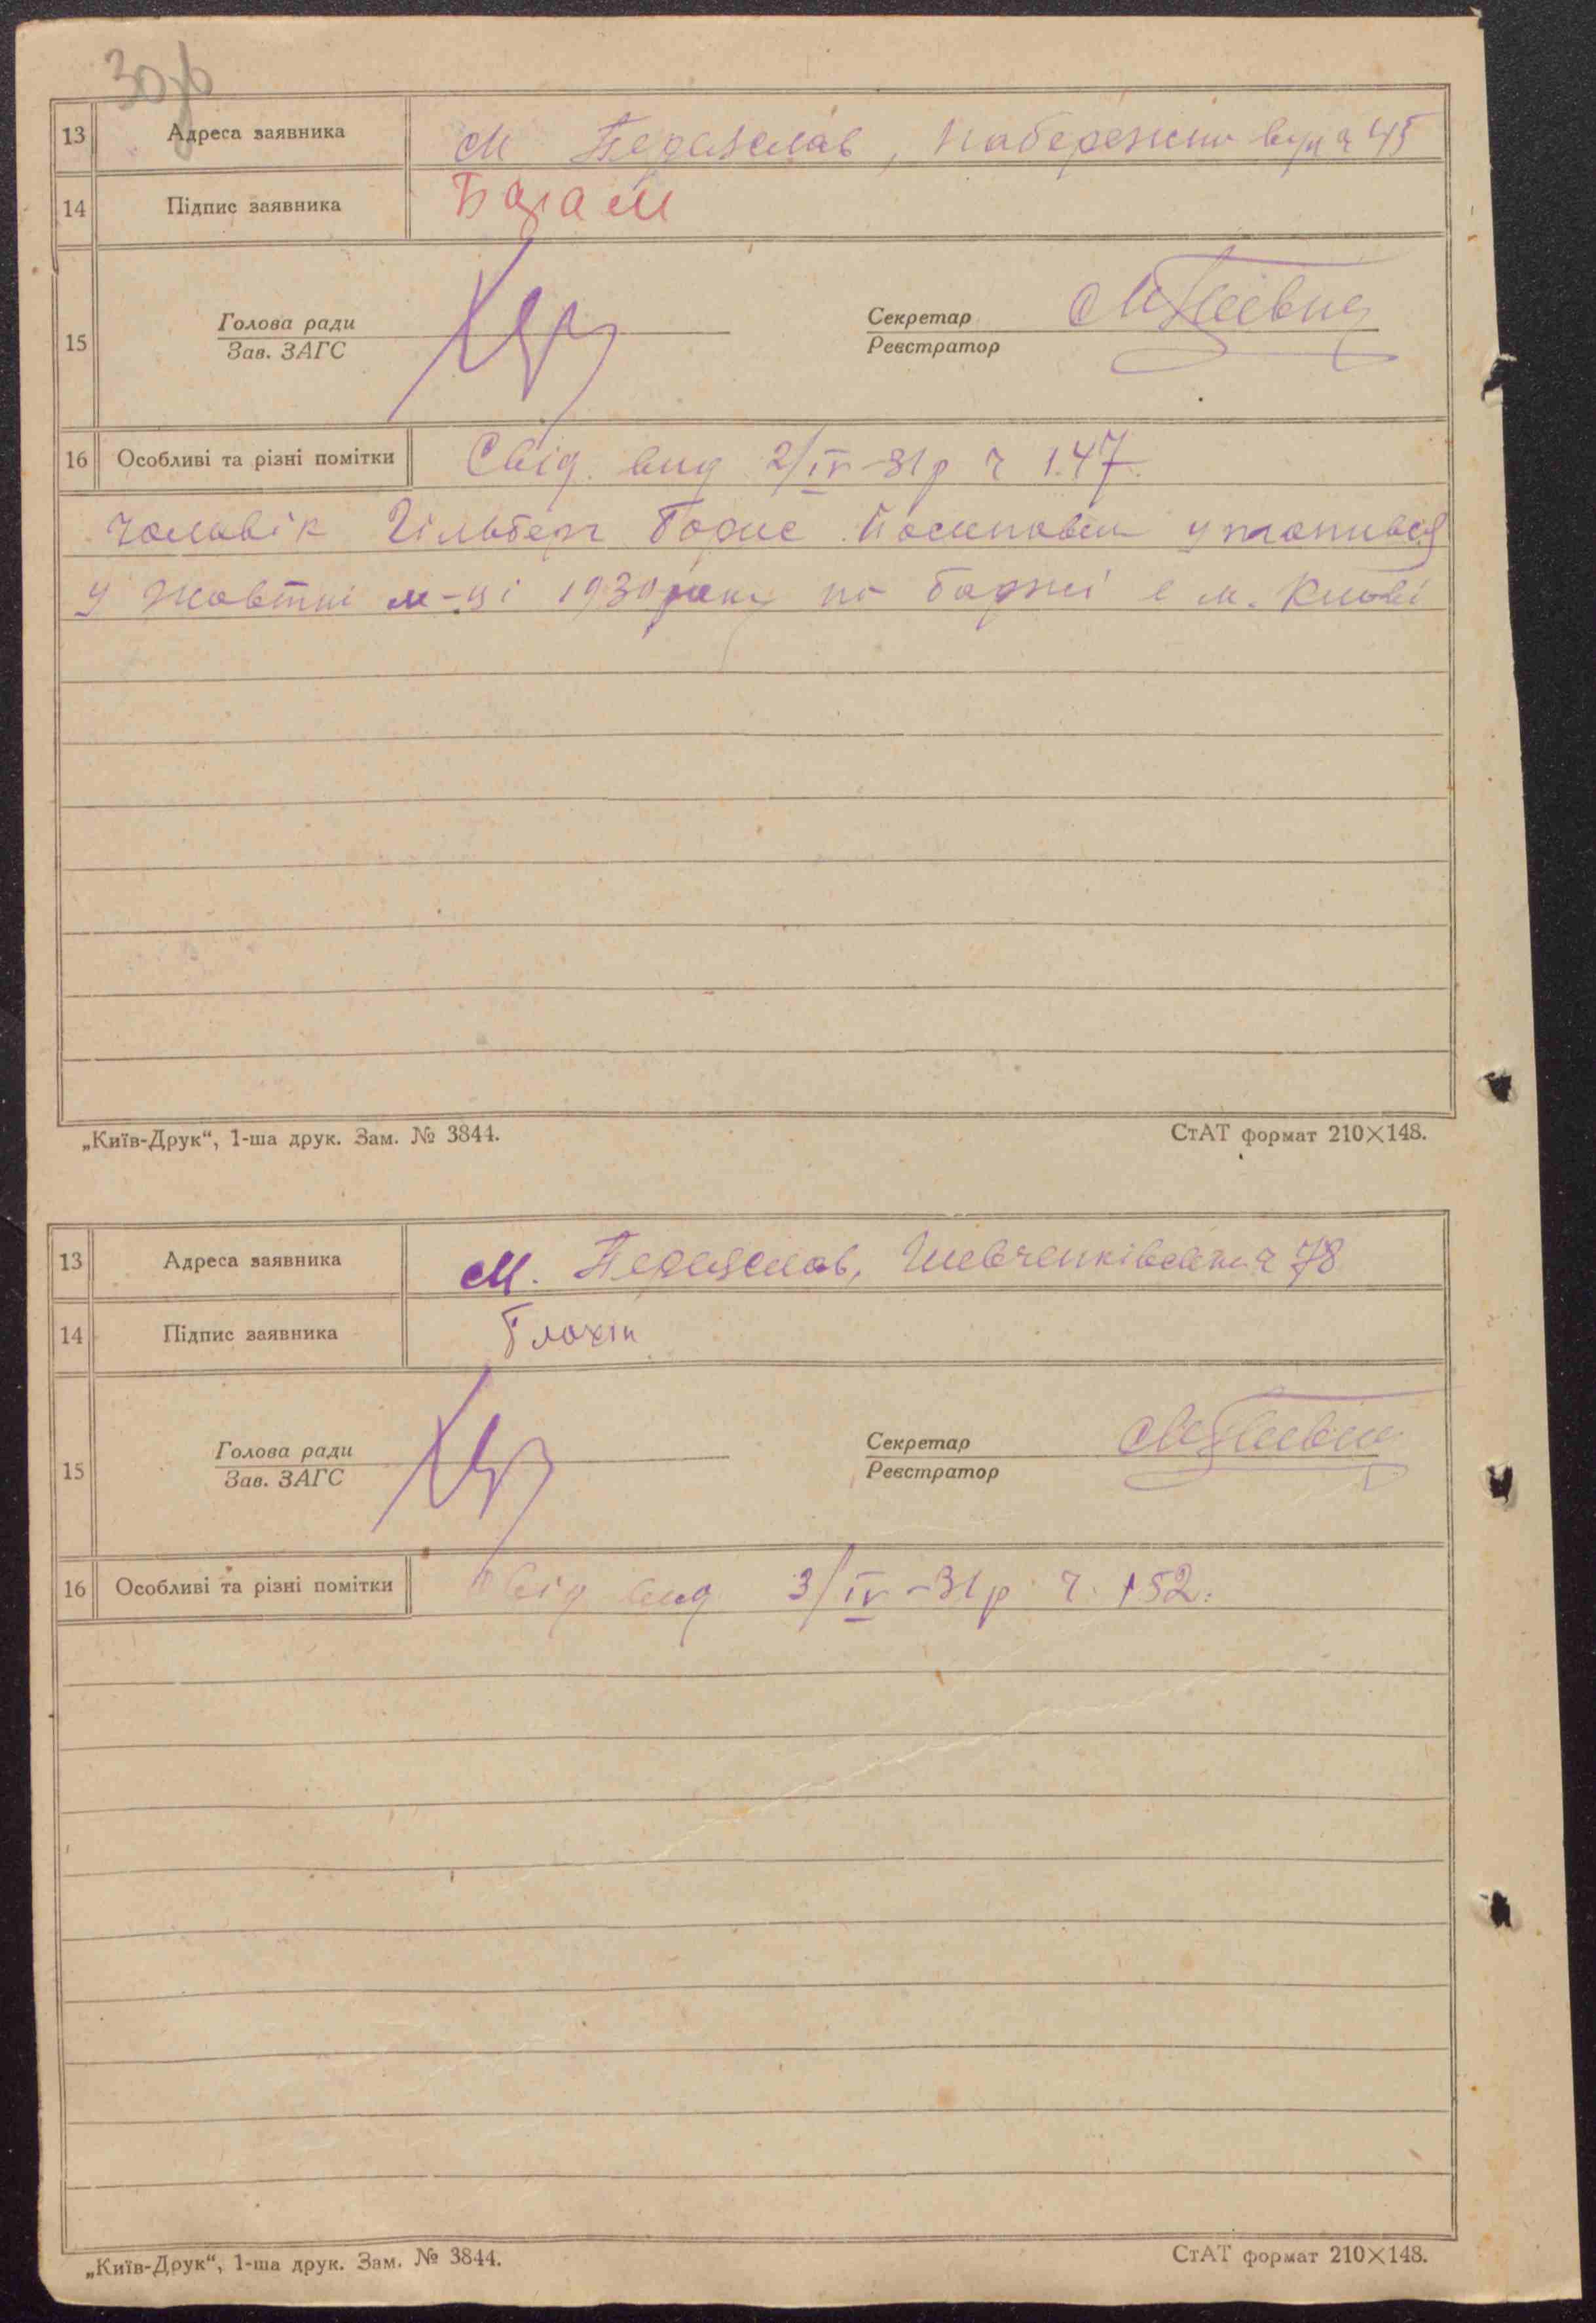 30
13 Адреса заявника м Переяслав, Набережна вул ч 45
14 Підпис заявника
Голова ради Секретар
15
Зав. ЗАГС Реєстратор
16 Особливі та різні помітки Свід. вид 2/IV-31р ч 147.
чоловік Гільберг Борис Йосипович утопився
у Жовтні м-ці 1930 року на баржі в м. Києві
„Київ-Друк“, 1-ша друк. Зам. № 3844. СтАТ формат 210×148.
13 Адреса заявника м. Переяслав, Шевченківська ч 78
14 Підпис заявника
Голова ради Секретар
15
Зав. ЗАГС Реєстратор
16 Особливі та різні помітки Свід вид 3/IV-31р ч. 152.
„Київ-Друк“, 1-ша друк. Зам. № 3844. СтАТ формат 210×148.